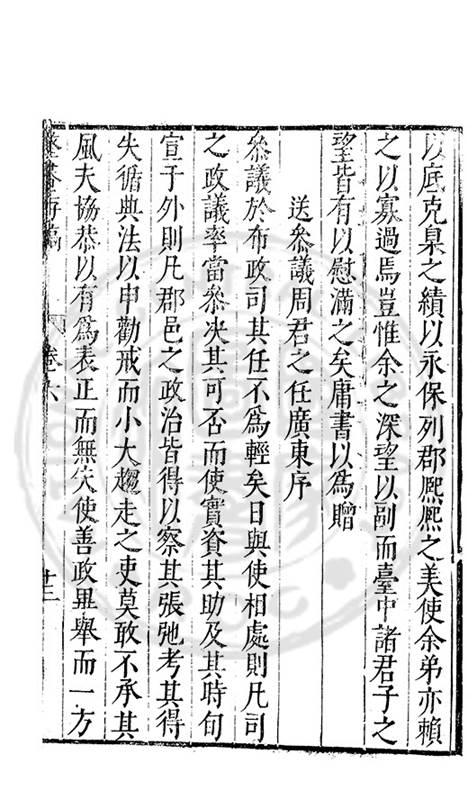 以底克臬之績以永保列郡熈熈之美使余弟亦賴
之以寡過焉豈惟余之深望以副而臺中諸君子之
望皆有以慰滿之矣庸書以為贈
送叅議周君之任廣東序
叅議於布政司其任不為輕矣日與使相處則凡司
之政議率當叅决其可否而使實資其助及其時旬
宣于外則凡郡邑之政治皆得以察其張弛考其得
失循典法以申勸戒而小大趨走之吏莫敢不承其
風夫協恭以有為表正而無失使善政畢舉而一方
卷六
十二